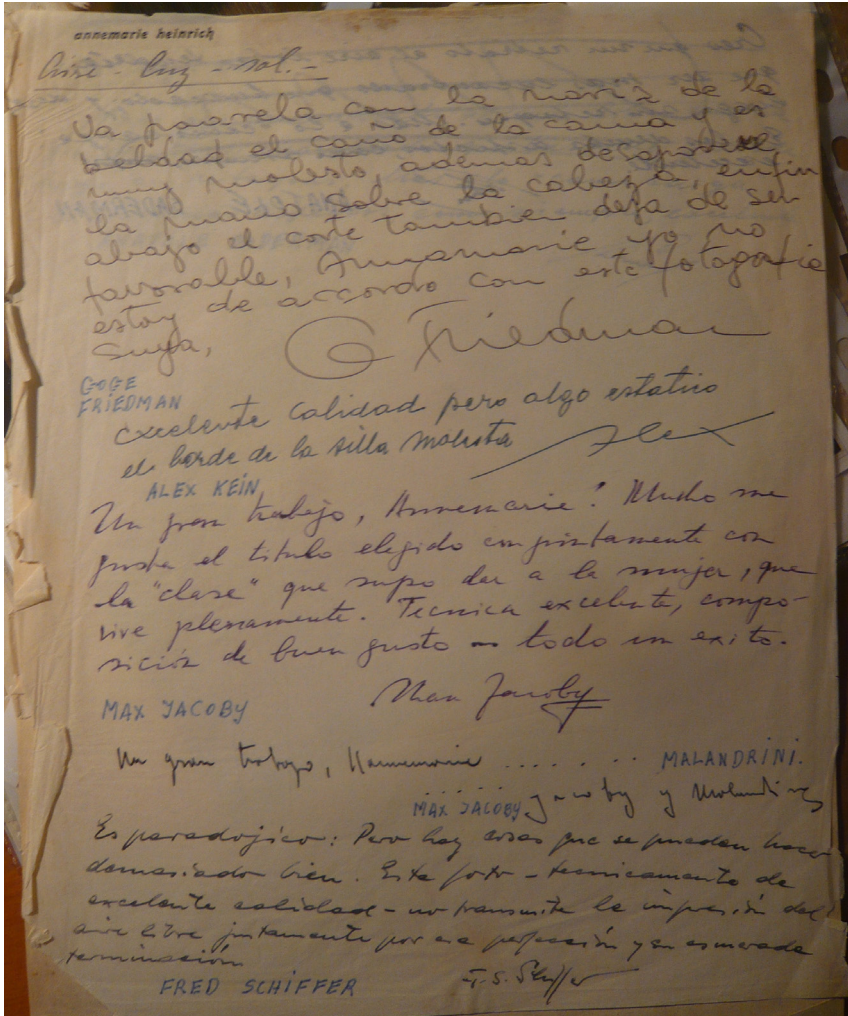 annemarie heinrich
Aire - Luz - sol.-
Va paarela con la nariz de la
beldad el caño de la cama y es
muy molesto, ademas desaparece
la mano sobre la cabeza, enfin
abajo el corte tambien deja de ser
favorable, Annamarie yo no
estoy de accordo con este fotografie
suya,
G Friedman
GOGE
FRIEDMAN
excelente calidad pero algo estatico
el borde de la silla molesta
Alex
ALEX KEIN
Un gran trabajo, Annemarie! Mucho me
gusta el titulo elegido conjuntamente con
la "clase" que supo dar a la mujer, que
vive plenamente. Tecnica excelente, compo-
sición de buen gusto - todo un exito.
Max Jacoby
MAX JACOBY
Un gran trabajo, Hannemarie ........ MALANDRINI.
...... Jacoby y Malandrines
MAX JACOBY
Es paradojico: Pero hay cosas que se pueden hacer
demasiado bien. Esta foto - tecnicamente de
excelente calidad - no transmite la impresión del
aire libre justamente por esa perfección y su esmerada
terminación
F. S. Schiffer
FRED SCHIFFER